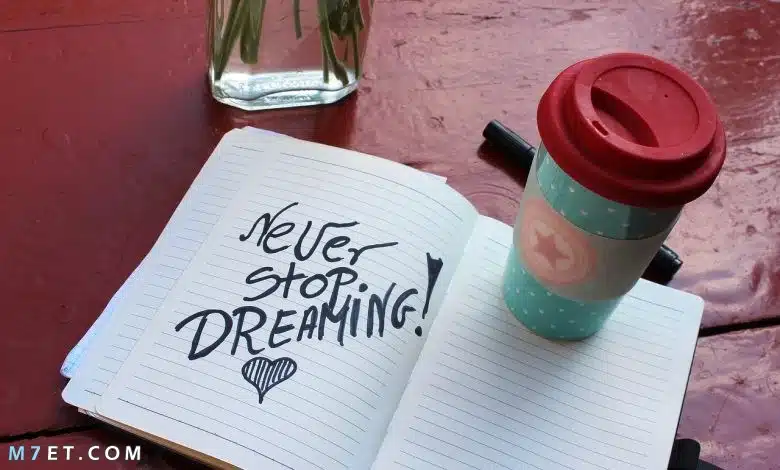 Never
STOP
DREAMING!
M7ET.COM